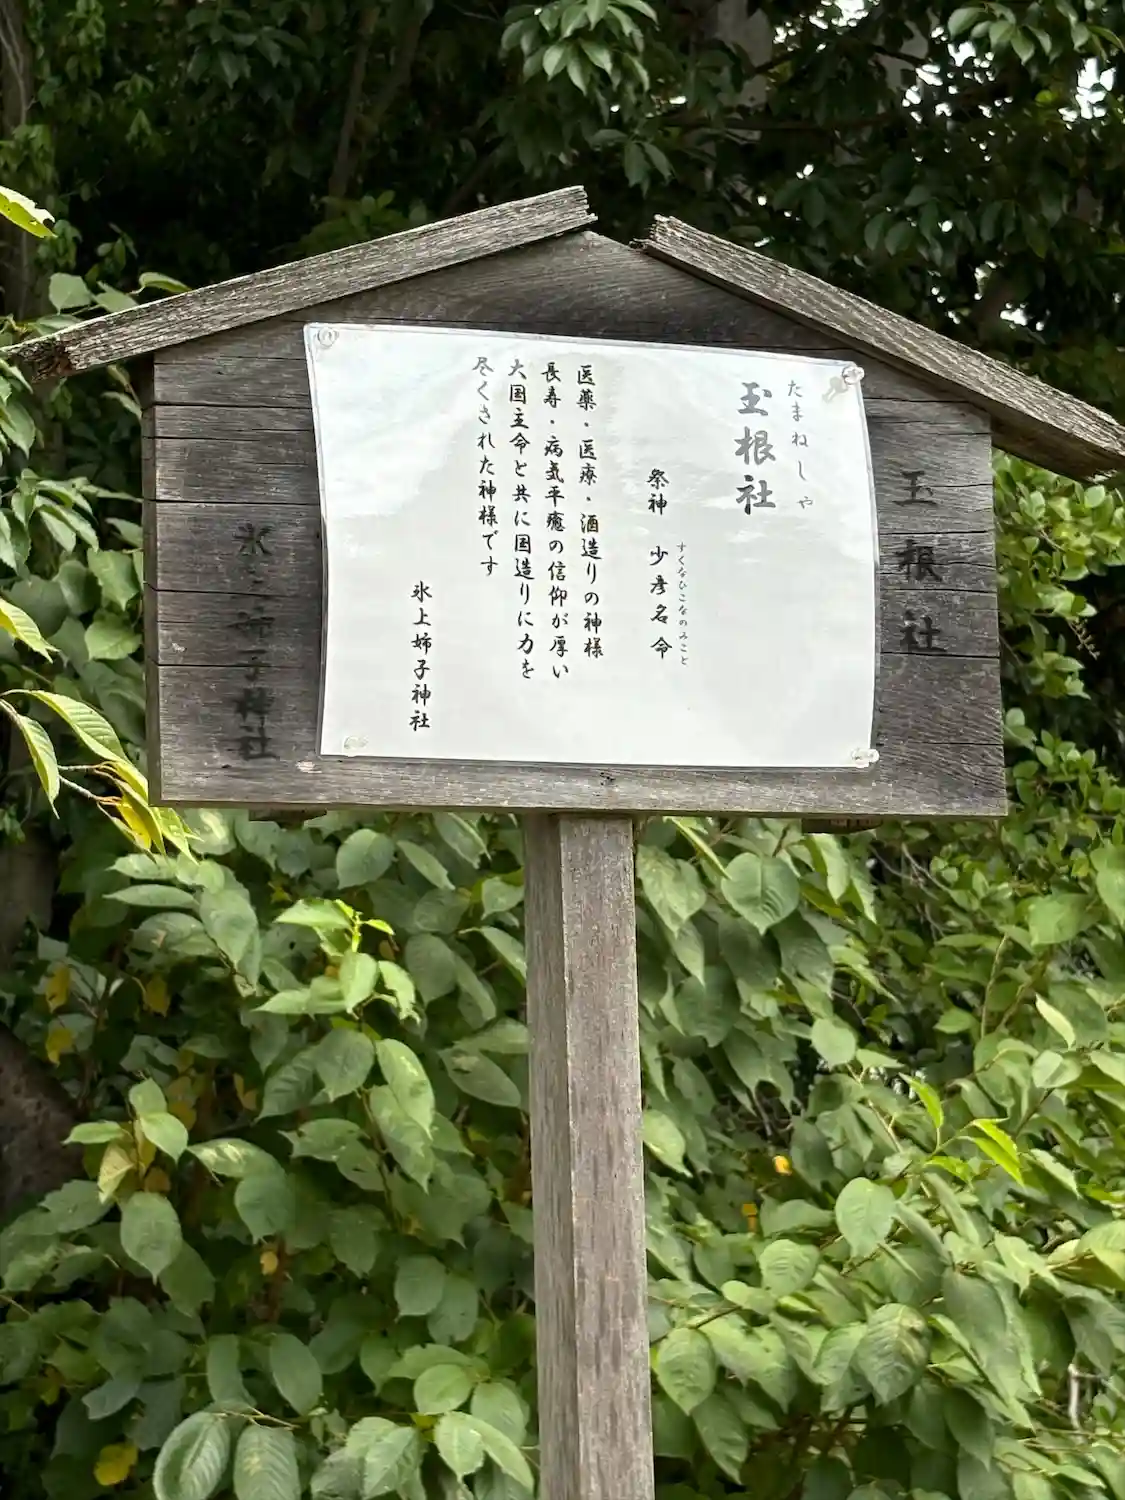 玉根社
たまねしゃ
玉根社
祭神 少彦名命
すくなひこなのみこと
医薬・医療・酒造りの神様
長寿・病気平癒の信仰が厚い
大国主命と共に国造りに力を
尽くされた神様です
氷上姉子神社
氷上姉子神社